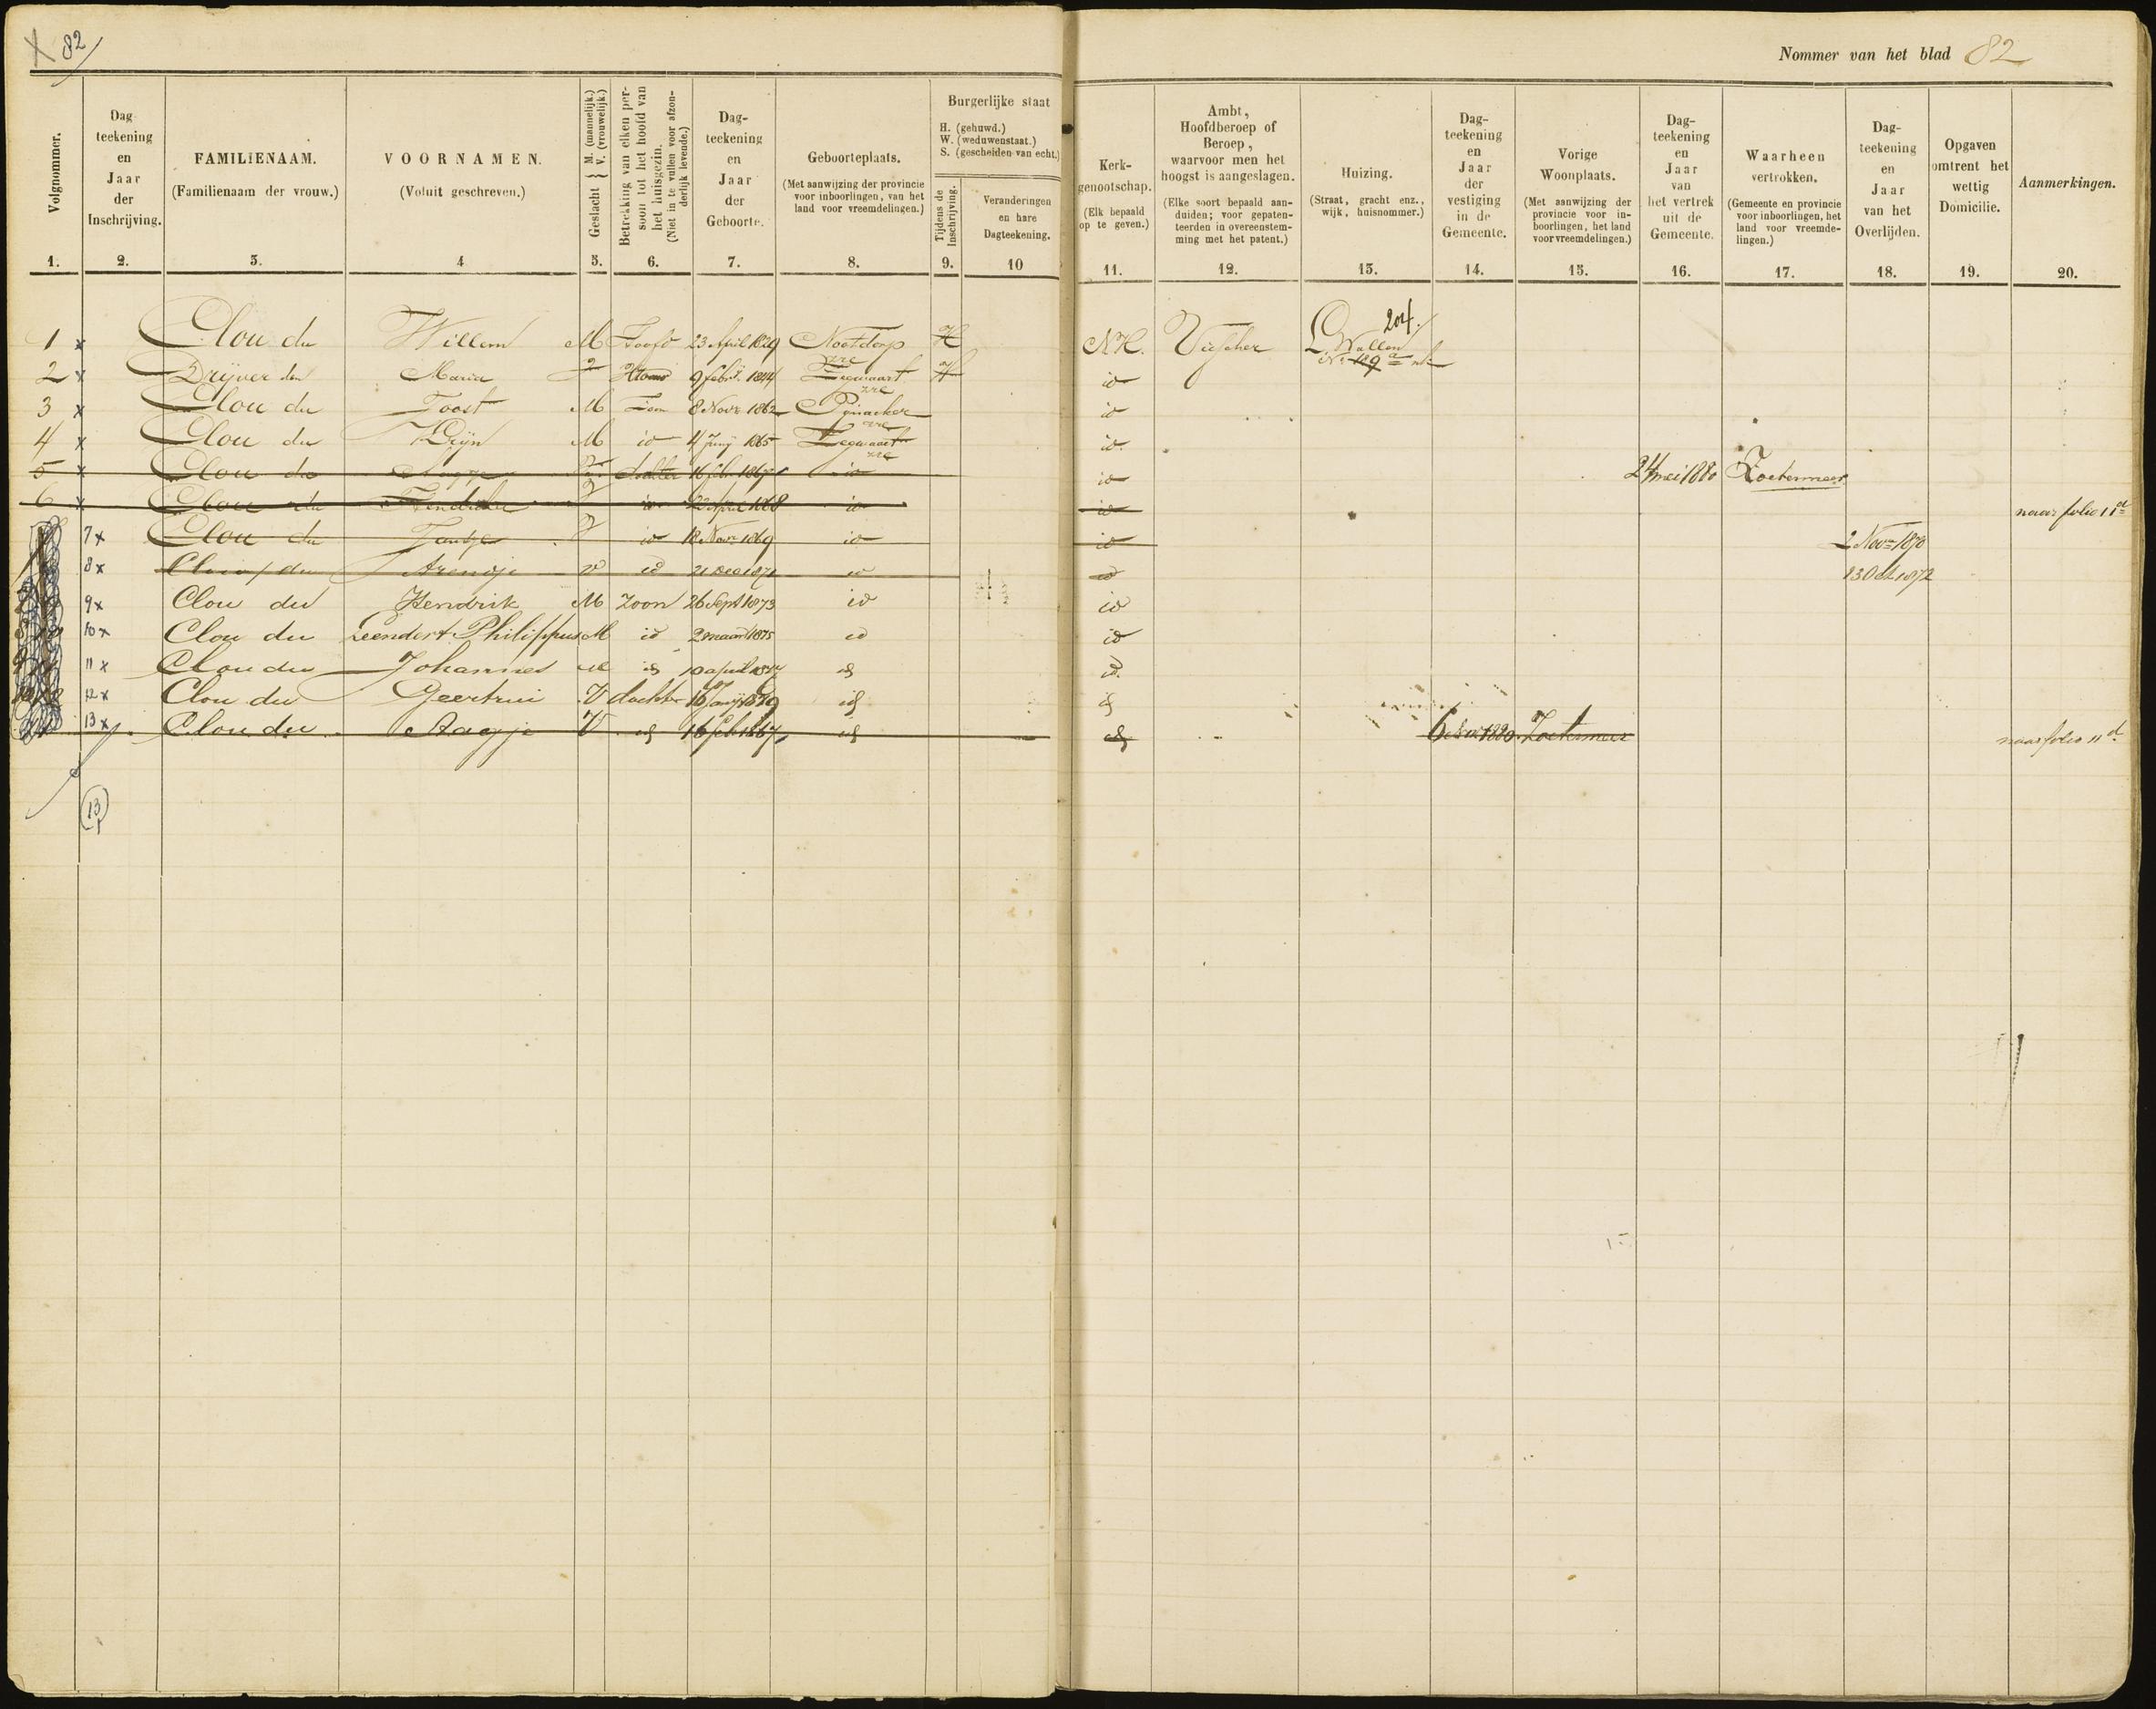 82
Nommer van het blad 82
Volgnommer.
1.
Dag
teekening
en
Jaar
der
Inschrijving.
2.
FAMILIENAAM.
(Familienaam der vrouw.)
3.
VOORNAMEN.
(Voluit geschreven.)
4
Geslacht } M. (mannelijk.) V. (vrouwelijk.)
5.
Betrekking van elken per-
soon tot het hoofd van
het huisgezin.
(Niet in te vullen voor afzon-
derlijk levende.)
6.
Dag-
teekening
en
Jaar
der
Geboorte.
7.
Geboorteplaats.
(Met aanwijzing der provincie
voor inboorlingen, van het
land voor vreemdelingen.)
8.
Burgerlijke staat
H. (gehuwd.)
W. (weduwenstaat.)
S. (gescheiden van echt.)
Tijdens de
Inschrijving.
9.
Veranderingen
en hare
Dagteekening.
10
Kerk-
genootschap.
(Elk bepaald
op te geven.)
11.
Ambt,
Hoofdberoep of
Beroep,
waarvoor men het
hoogst is aangeslagen.
(Elke soort bepaald aan-
duiden; voor gepaten-
teerden in overeenstem-
ming met het patent.)
12.
Huizing.
(Straat, gracht enz.,
wijk, huisnommer.)
13.
Dag-
teekening
en
Jaar
der
vestiging
in de
Gemeente.
14.
Vorige
Woonplaats.
(Met aanwijzing der
provincie voor in-
boorlingen, het land
voor vreemdelingen.)
15.
Dag-
teekening
en
Jaar
van
het vertrek
uit de
Gemeente.
16.
Waarheen
vertrokken.
(Gemeente en provincie
voor inboorlingen, het
land voor vreemde-
lingen.)
17.
Dag-
teekening
en
Jaar
van het
Overlijden.
18.
Opgaven
omtrent het
wettig
Domicilie.
19.
Aanmerkingen.
20.
1 x Clou du Willem M Hoofd 23 April 1829 Nootdorp H NH. Visscher L Wallen 204.
No 189 a
2 x Drijver den Maria V 9 Febr. 1844 Zegwaart H id
3 x Clou du Joost M Zoon 8 Nov 1862 Pijnacker id
4 x Clou du Krijn M id 4 Junij 1865 Zegwaart id
5 x Clou du Aagje V dochter 16 Febr 1867 id id 24 mei 1880 Zoetermeer
6 x Clou du V id 22 April 1868 id id naar folio 11d
7 x Clou du Jansje V id 18 Nov 1869 id id 2 Nov 1870
8 x Clou du Arendje V id 21 Dec 1871 id id 13 Oct 1872
9 x Clou du Hendrik M zoon 26 Sept 1873 id id
10 x Clou du Leendert Philippus M id 2 maart 1875 id id
11 x Clou du Johannes M id 10 april 1877 id id.
12 x Clou du Geertrui V dochter 16 1879 id id
13 x Clou du Aagje V id 16 feb 1867 id id 6 1880 Zoetermeer naar folio 11d
13